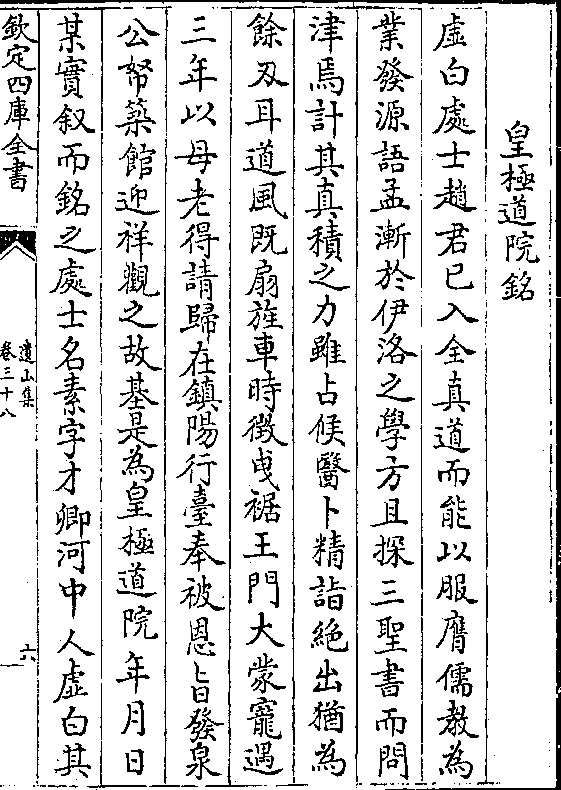 皇極道院銘
虛白處士趙君已入全真道而能以服膺儒教為
業發源語孟漸於伊洛之學方且探三聖書而問
津焉計其真積之力雖占候醫卜精詣絶出猶為
餘刄耳道風既扇旌車時徴曵裾王門大蒙寵遇
三年以母老得請歸在鎮陽行臺奉被恩旨發泉
公帑築館迎祥觀之故基是為皇極道院年月日
某實叙而銘之處士名素字才卿河中人虛白其
欽定四庫全書
遺山集
卷三十八
六